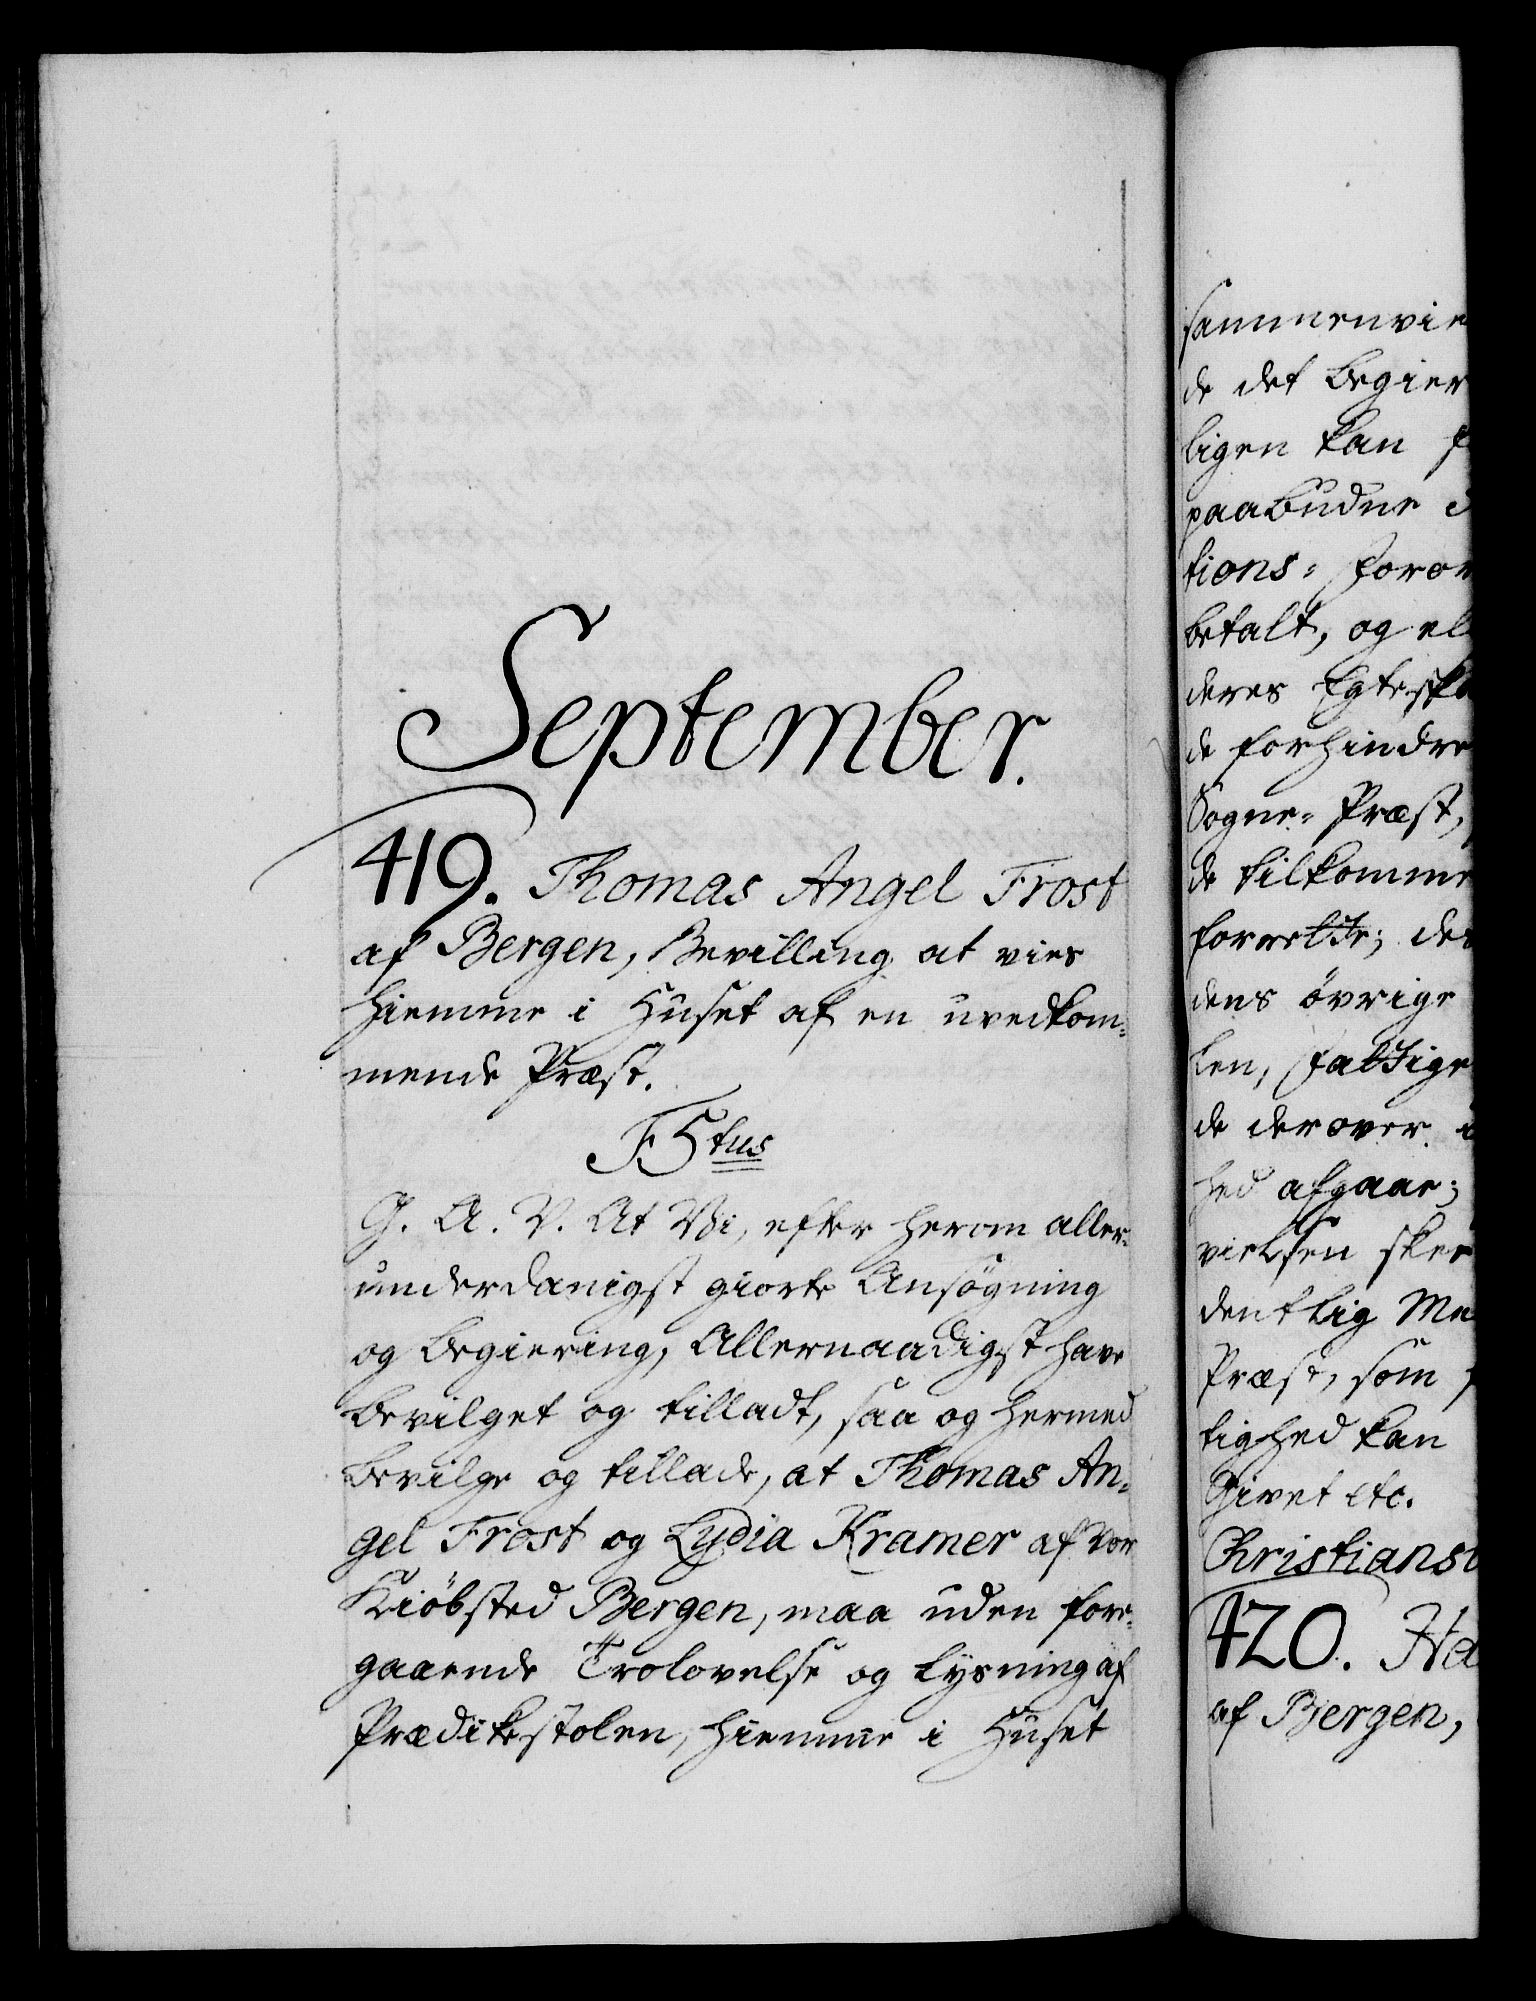 September.
419. Thomas Angel Frost
af Bergen, Bevilling at vies
hiemme i Huset af en uvedkom-
mende Præst.
F5tus
G. A. V. At Vi, efter herom aller-
underdanigst giorte Ansøgning
og Begiering, Allernaadigst have
bevilget og tilladt, saa og hermed
bevilge og tillade, at Thomas An-
gel Frost og Lydia Kramer af Vor
Kiöbsted Bergen, maa uden fore-
gaaende Trolovelse og Lysning af
Prædikestolen, hiemme i Huset
sammenvie
de det begier
ligen kan
paabudne
tions- Foror
betalt, og el
deres Egteska
de forhindre
Sogne- Præst,
de tilkomme
forrette; de
dens övrige
len, Fattige
de derover i
hed afgaae;
vielsen skee
dentlig Me
Præst, som
tighed kan
Givet etc.
Christiansb
420. Ha
af Bergen,